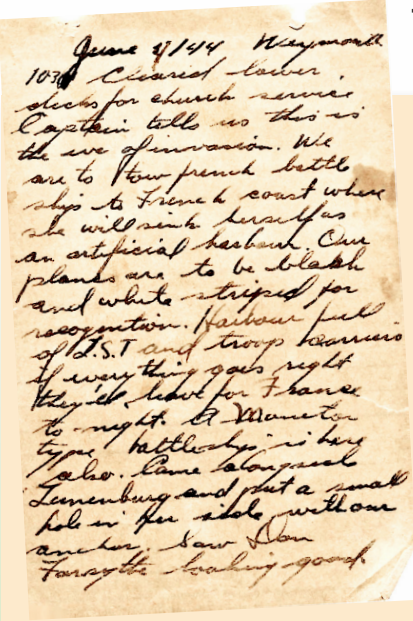 June 4/44 Weymouth
1030 Cleared lower
decks for church service
Captain tells us this is
the eve of invasion. We
are to tow french battle
ship to French coast where
she will sink herself as
an artificial harbour. Our
planes are to be black
and white striped for
recognition. Harbour full
of L.S.T and troop carriers
if everything goes right
they'll leave for France
to night. A Monitor
type battleship is here
also. Came alongside
Lunenburg and put a small
hole in her side with our
anchor. Saw Don
Forsythe looking good.